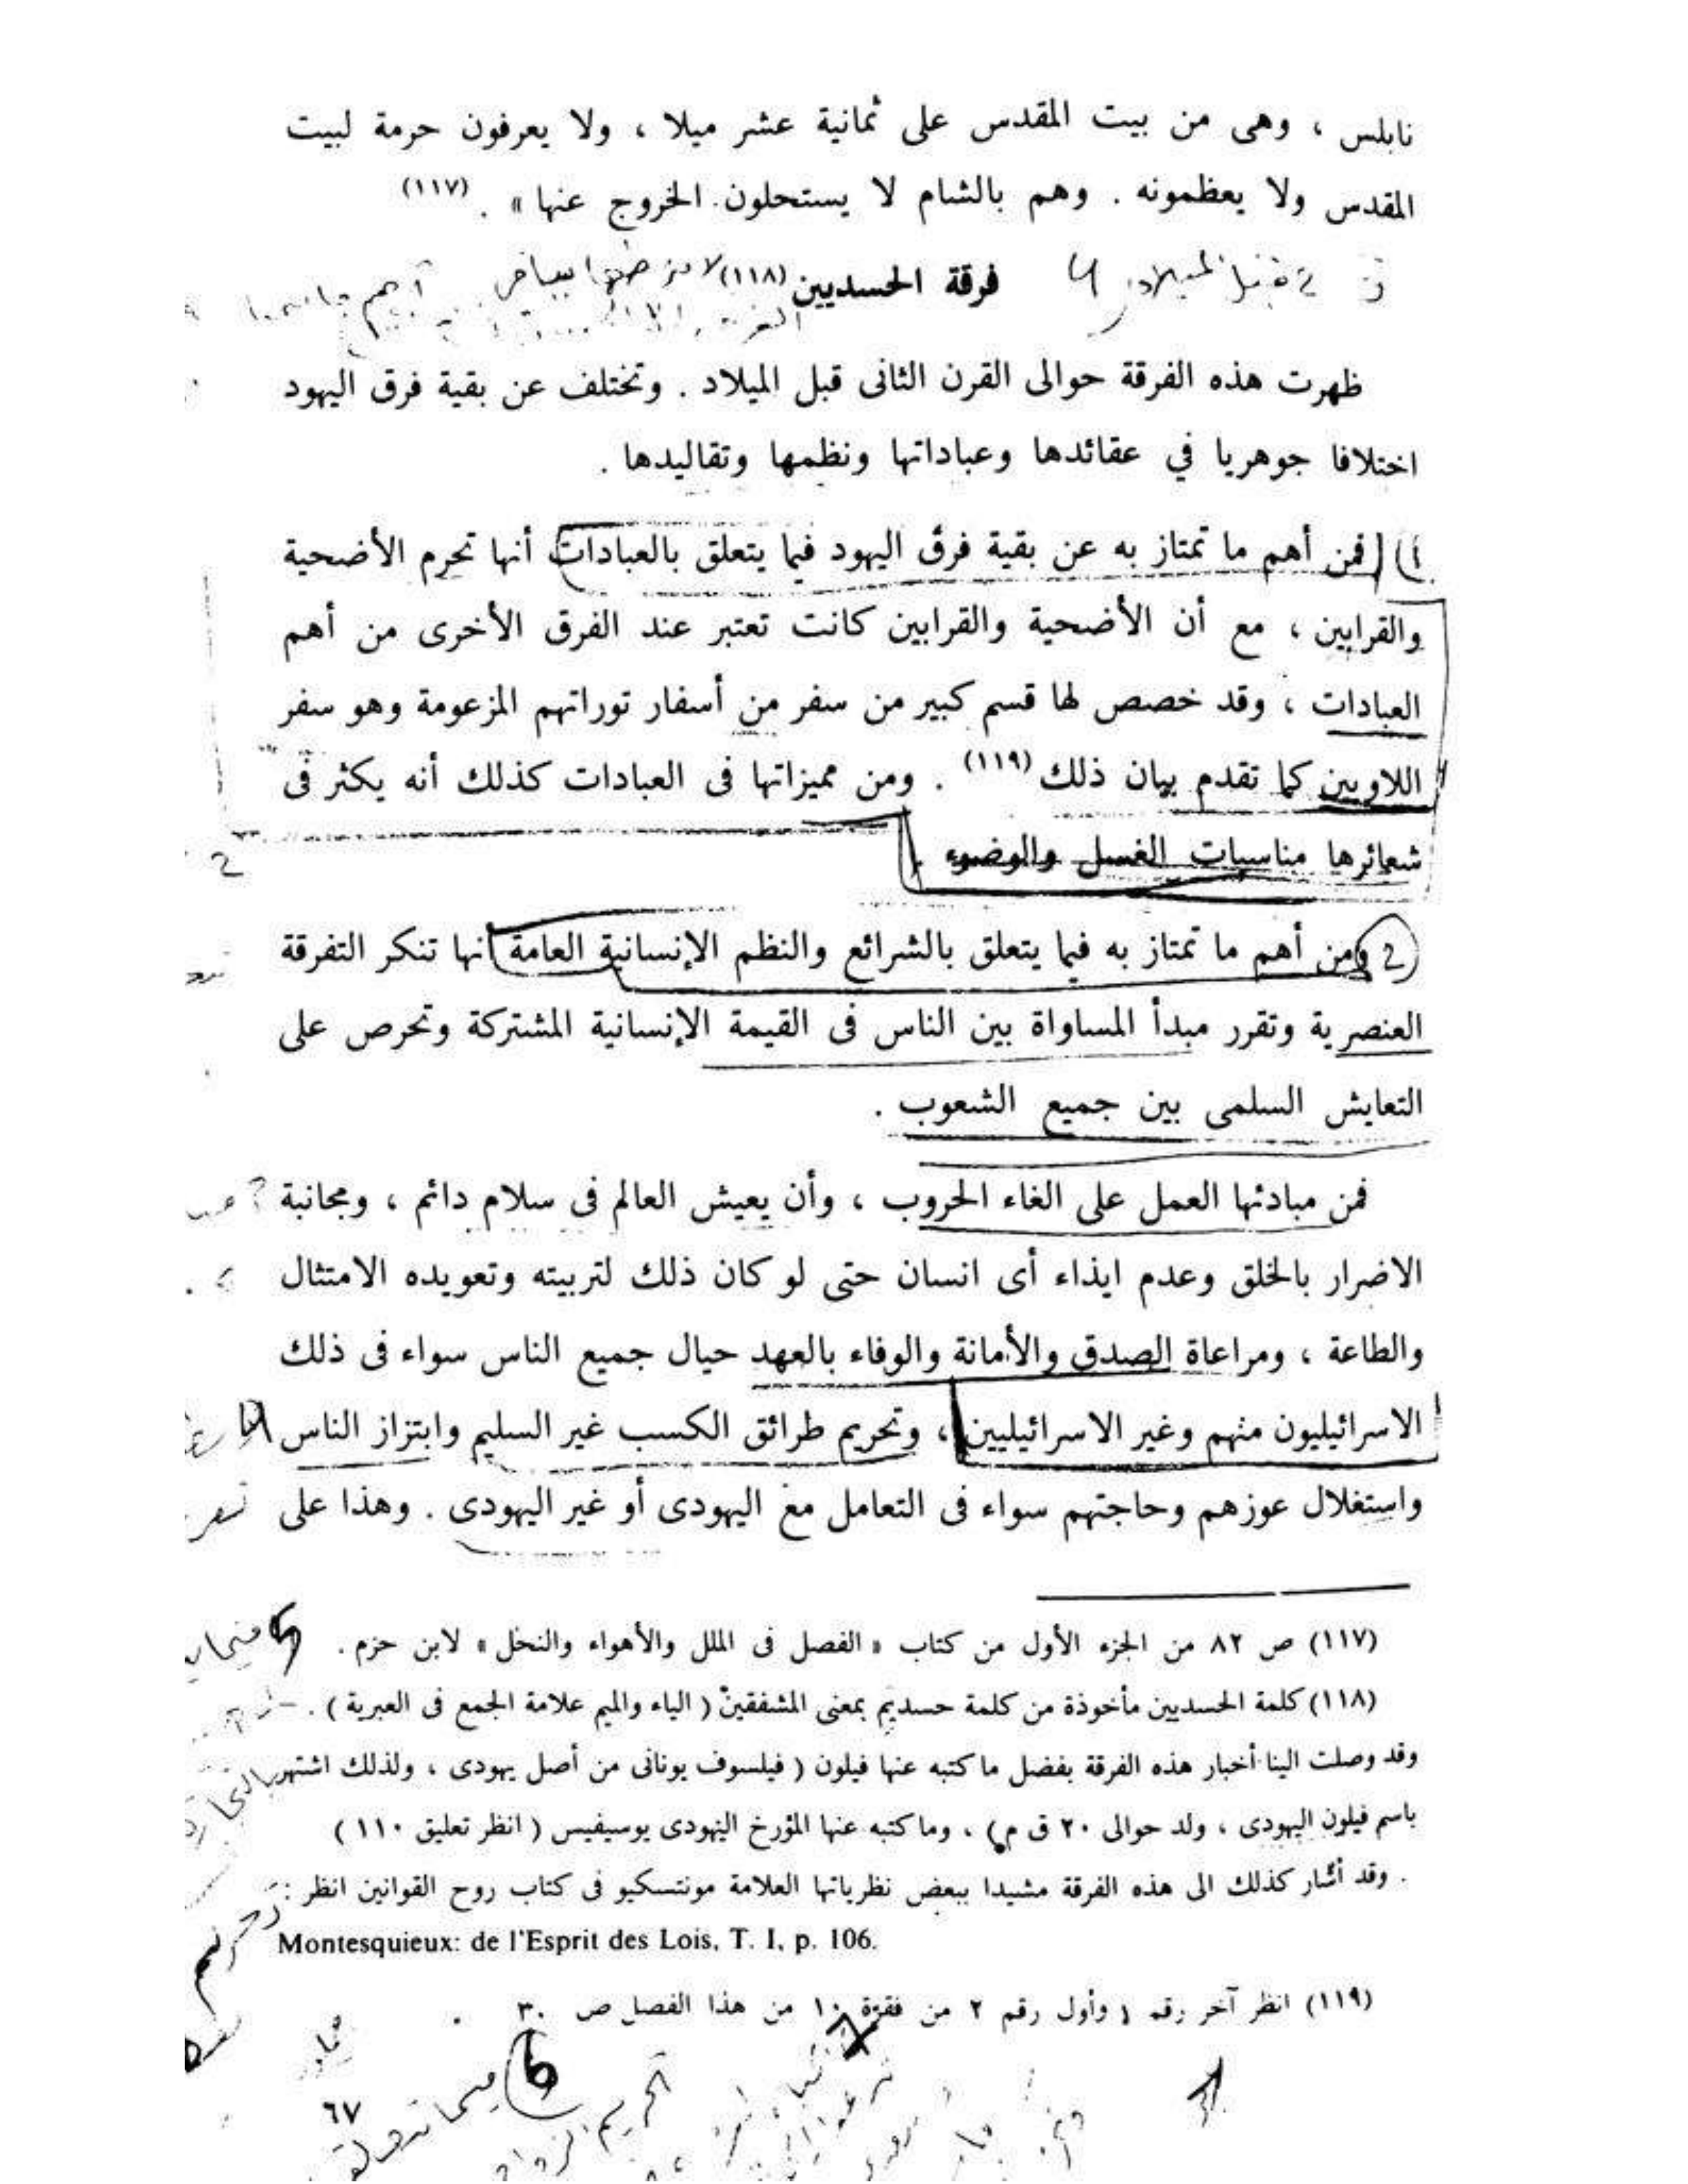 نابلس ، وهى من بيت المقدس على ثمانية عشر ميلا ، ولا يعرفون حرمة لبيت
المقدس ولا يعظمونه . وهم بالشام لا يستحلون الخروج عنها » . (١١٧)
فرقة الحسديين (١١٨)
ظهرت هذه الفرقة حوالى القرن الثانى قبل الميلاد . وتختلف عن بقية فرق اليهود
اختلافا جوهريا في عقائدها وعباداتها ونظمها وتقاليدها .
فمن أهم ما تمتاز به عن بقية فرق اليهود فيما يتعلق بالعبادات أنها تحرم الأضحية
والقرابين ، مع أن الأضحية والقرابين كانت تعتبر عند الفرق الأخرى من أهم
العبادات ، وقد خصص لها قسم كبير من سفر من أسفار توراتهم المزعومة وهو سفر
اللاويين كما تقدم بيان ذلك (١١٩) . ومن مميزاتها فى العبادات كذلك أنه يكثر فى
شعائرها مناسبات الغسل والوضوء .
2
2 ومن أهم ما تمتاز به فيما يتعلق بالشرائع والنظم الإنسانية العامة أنها تنكر التفرقة
العنصرية وتقرر مبدأ المساواة بين الناس فى القيمة الإنسانية المشتركة وتحرص على
التعايش السلمى بين جميع الشعوب .
فمن مبادئها العمل على الغاء الحروب ، وأن يعيش العالم فى سلام دائم ، ومجانبة
الاضرار بالخلق وعدم ايذاء أى انسان حتى لو كان ذلك لتربيته وتعويده الامتثال
والطاعة ، ومراعاة الصدق والأمانة والوفاء بالعهد حيال جميع الناس سواء فى ذلك
الاسرائيليون منهم وغير الاسرائيليين ، وتحريم طرائق الكسب غير السليم وابتزاز الناس
واستغلال عوزهم وحاجتهم سواء فى التعامل مع اليهودى أو غير اليهودى . وهذا على
(١١٧) ص ٨٢ من الجزء الأول من كتاب « الفصل فى الملل والأهواء والنحل » لابن حزم .
(١١٨) كلمة الحسديين مأخوذة من كلمة حسديم بمعنى المشفقين ( الياء والميم علامة الجمع فى العبرية ) .
وقد وصلت الينا أخبار هذه الفرقة بفضل ما كتبه عنها فيلون ( فيلسوف يونانى من أصل يهودى ، ولذلك اشتهر
باسم فيلون اليهودى ، ولد حوالى ٢٠ ق م ) ، وما كتبه عنها المؤرخ اليهودى يوسيفيس ( انظر تعليق ١١٠ )
. وقد أشار كذلك الى هذه الفرقة مشيدا ببعض نظرياتها العلامة مونتسكيو فى كتاب روح القوانين انظر :
Montesquieux: de l'Esprit des Lois, T. I, p. 106.
(١١٩) انظر آخر رقم ١ وأول رقم ٢ من فقرة ١٠ من هذا الفصل ص ٣٠ .
٦٧